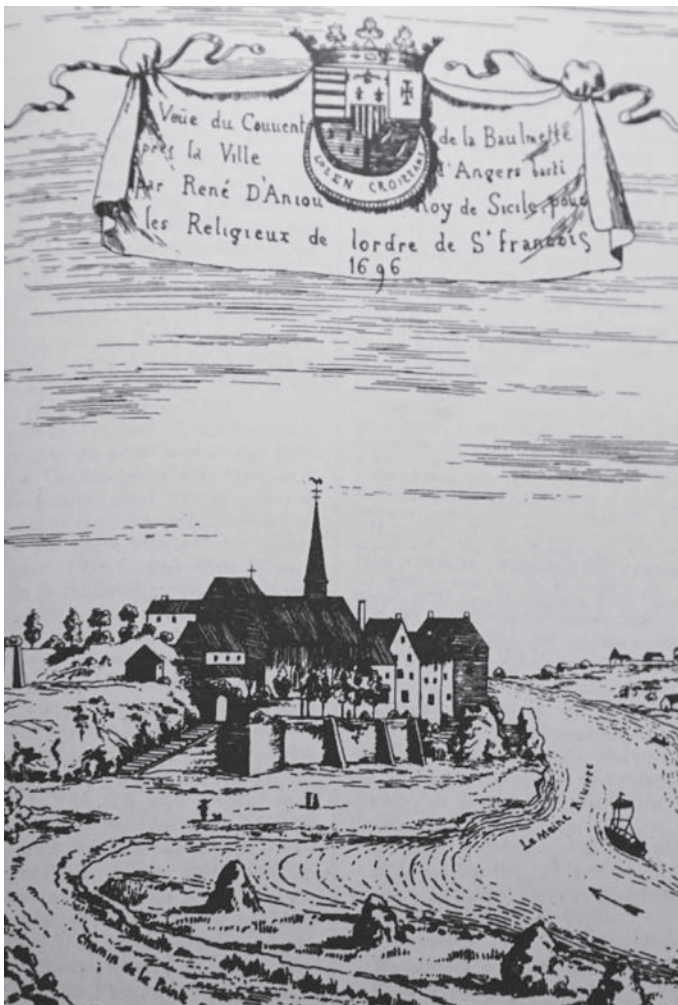 Veüe du Couuent de la Baulmette
pres la Ville d'Angers basti
Par René D'Aniou Roy de Sicile, pour
les Religieux de lordre de St francois
1696
LOZ EN CROISSANT
La Maine Riuiere
Chemin de la Pointe